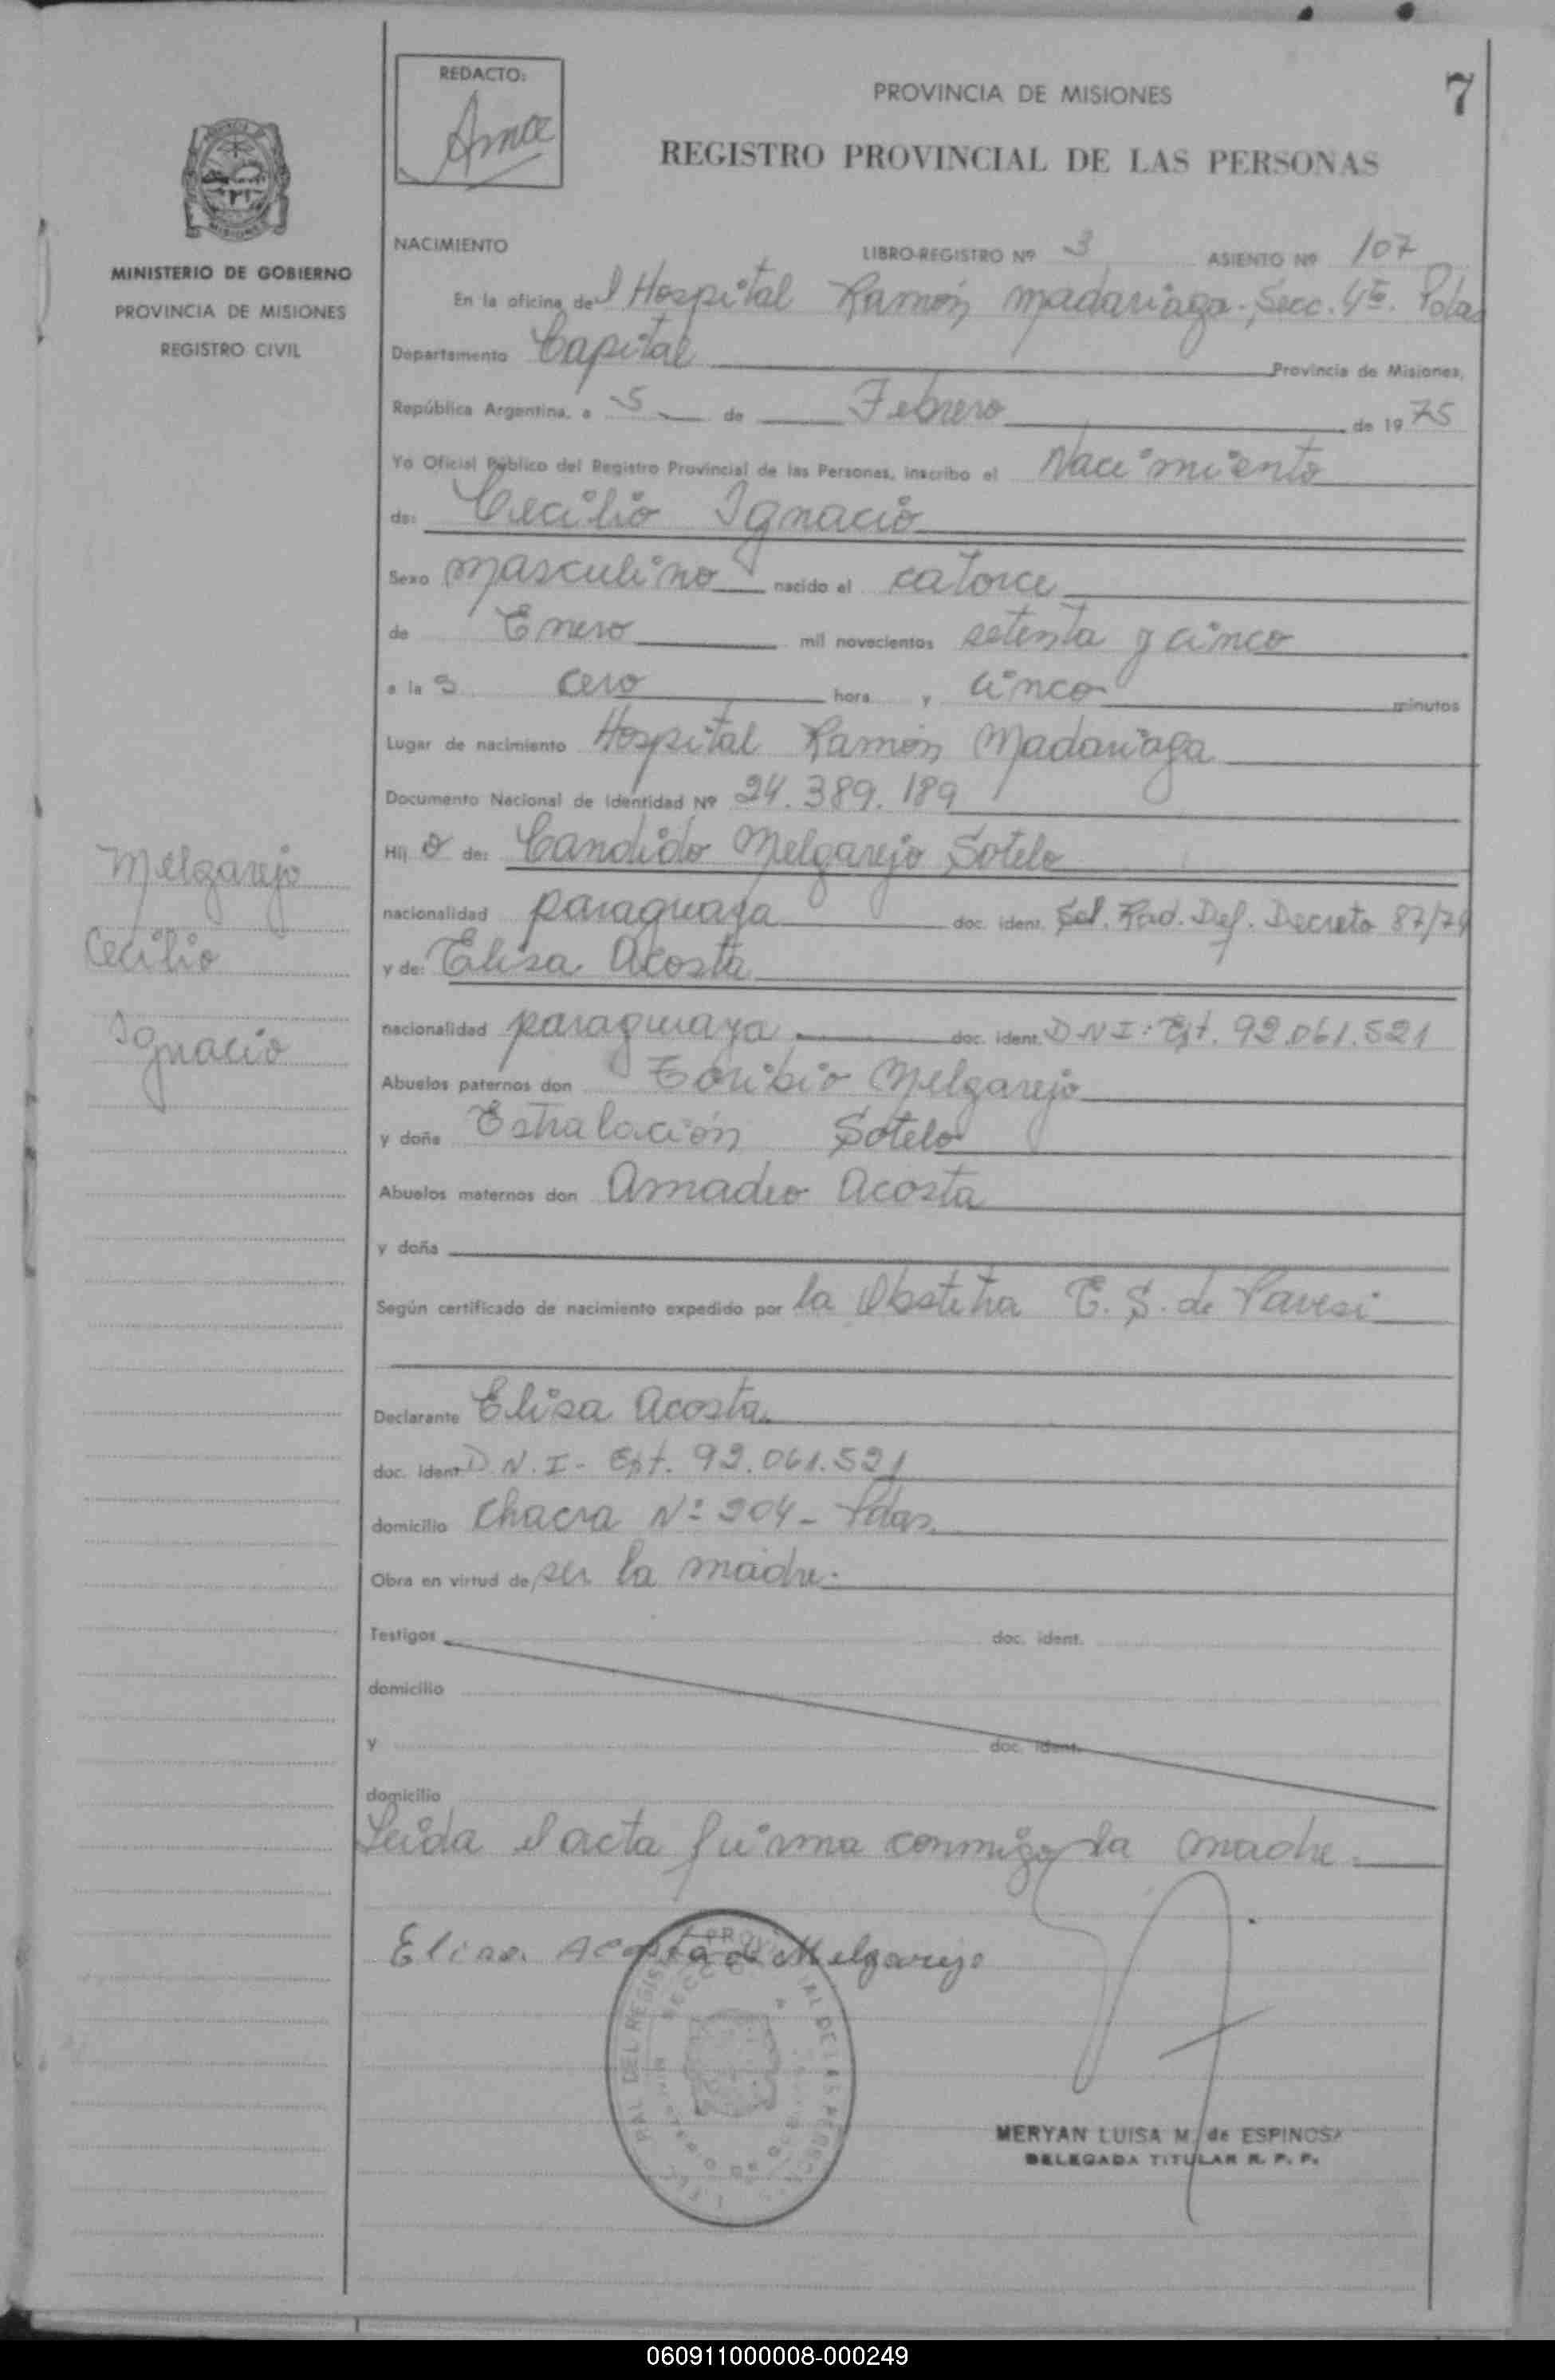 REDACTO:
PROVINCIA DE MISIONES
7
REGISTRO PROVINCIAL DE LAS PERSONAS
MINISTERIO DE GOBIERNO
PROVINCIA DE MISIONES
REGISTRO CIVIL
NACIMIENTO LIBRO-REGISTRO Nº 3 ASIENTO Nº 107
En la oficina del Hospital Ramón Madariaga - Secc. 4ta. Pdas
Departamento Capital Provincia de Misiones,
República Argentina, a 5 de Febrero de 1975
Yo Oficial Público del Registro Provincial de las Personas, inscribo el Nacimiento
de: Cecilio Ignacio
Sexo masculino nacido el catorce
de Enero mil novecientos setenta y cinco
a las cero hora y cinco minutos
Lugar de nacimiento Hospital Ramón Madariaga
Documento Nacional de Identidad Nº 24.389.189
Hijo de: Candido Melgarejo Sotelo
nacionalidad paraguaya doc. ident. Sol. Rad. Def. Decreto 87/74
y de: Elisa Acosta
nacionalidad paraguaya doc. ident. D N I: Ext. 92.061.521
Abuelos paternos don Toribio Melgarejo
y doña Estralación Sotelo
Abuelos maternos don Amadeo Acosta
y doña
Según certificado de nacimiento expedido por la Obstetra E. S. de Pavesi
Declarante Elisa Acosta
doc. ident. D. N. I - Ext. 92.061.521
domicilio Chacra Nº 204 - Pdas.
Obra en virtud de ser la madre.
Testigos doc. ident.
domicilio
y doc. ident.
domicilio
Leida el acta fuirma conmigo la madre.
Elisa Acosta de Melgarejo
MERYAN LUISA M. de ESPINOSA
DELEGADA TITULAR R. P. P.
Melgarejo
Cecilio
Ignacio
060911000008-000249